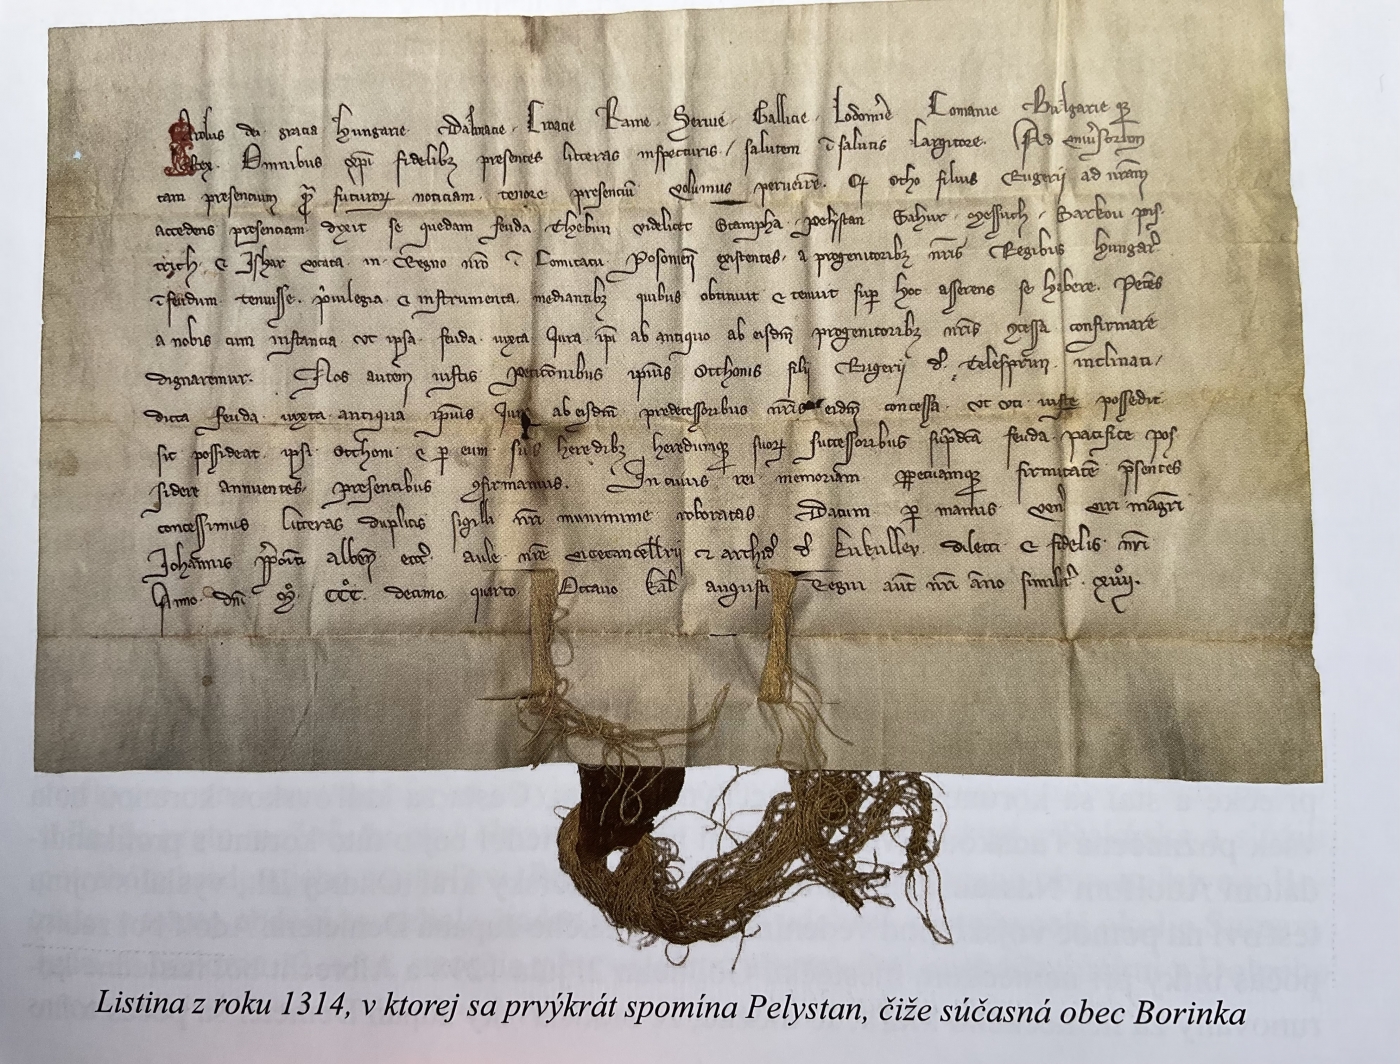 Karolus dei gracia Hungarie Dalmacie Croacie Rame Servie Gallicie Lodomerie Comanie Bulgarie q3
Rex. Omnibus xpi fidelib3 presentes litteras inspecturis / salutem salutis largitore. Ad
tam presencium futuror noticiam tenore presenciu volumus pervenire. Otho filius Rugerii ad nram
accedens presenciam dyxit se quedam feuda Thebun videlicet Stampha Pelystan Sahur Messuch / Barkou pris
trych & Ishar vocata in Regno nro Comitatu Posonien existentes a progenitorib3 nris Regibus Hungar
feudum tenuisse. privilegia & instrumenta mediantib3 quibus obtinuit & tenuit sup hoc asserens se habere. Petens
a nobis cum instancia vt ipsa feuda iuxta Jura ipi ab antiquo ab eisdm progenitorib3 nris confirmare
dignaremur. Nos autem iustis peticionibus ipius Otthonis filii Rugerii d inclinati /
dicta feuda iuxta antiqua ipius Jura ab eisdm predecessoribus nris eidm concessa vt vti iuste possedit
sic possideat ipsi Otthoni & p eum suis heredib3 heredumq3 suor successoribus feuda pacifice pos
sidere annuentes presentibus confirmamus. In cuius rei memoriam perpetuamq3 firmitate psentes
concessimus litteras duplicis sigilli nri munimine roboratas. Datum p manus ven viri magri
Johannis ppoiti alben eccl aule nre vicecancellarii & archid d Kukullev dilecti & fidelis nri
Anno dni Mo CCCo decimo quarto Octavo kal augusti Regni aut nri anno similit xiiiio.
Listina z roku 1314, v ktorej sa prvýkrát spomína Pelystan, čiže súčasná obec Borinka